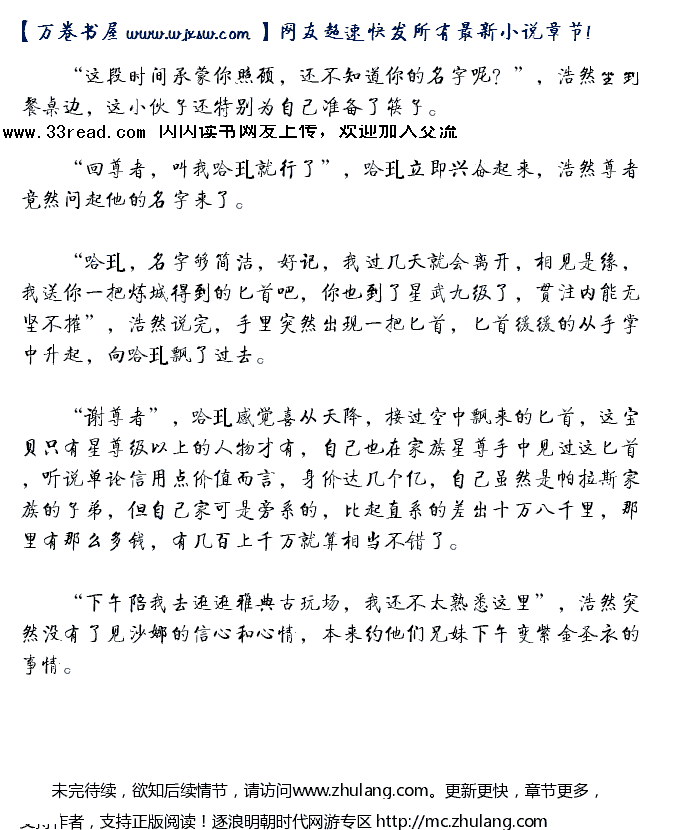 【万卷书屋 www.wjxsw.com 】网友超速快发所有最新小说章节!
“这段时间承蒙你照顾，还不知道你的名字呢？”，浩然坐到
餐桌边，这小伙子还特别为自己准备了筷子。
www.33read.com 闪闪读书网友上传，欢迎加入交流
“回尊者，叫我哈玌就行了”，哈玌立即兴奋起来，浩然尊者
竟然问起他的名字来了。
“哈玌，名字够简洁，好记，我过几天就会离开，相见是缘，
我送你一把炼城得到的匕首吧，你也到了星武九级了，贯注内能无
坚不摧”，浩然说完，手里突然出现一把匕首，匕首缓缓的从手掌
中升起，向哈玌飘了过去。
“谢尊者”，哈玌感觉喜从天降，接过空中飘来的匕首，这宝
贝只有星尊级以上的人物才有，自己也在家族星尊手中见过这匕首
，听说单论信用点价值而言，身价达几个亿，自己虽然是帕拉斯家
族的子弟，但自己家可是旁系的，比起直系的差出十万八千里，那
里有那么多钱，有几百上千万就算相当不错了。
“下午陪我去逛逛雅典古玩场，我还不太熟悉这里”，浩然突
然没有了见沙娜的信心和心情，本来约他们兄妹下午变紫金圣衣的
事情。
未完待续，欲知后续情节，请访问www.zhulang.com。更新更快，章节更多，
支持作者，支持正版阅读！逐浪明朝时代网游专区 http://mc.zhulang.com